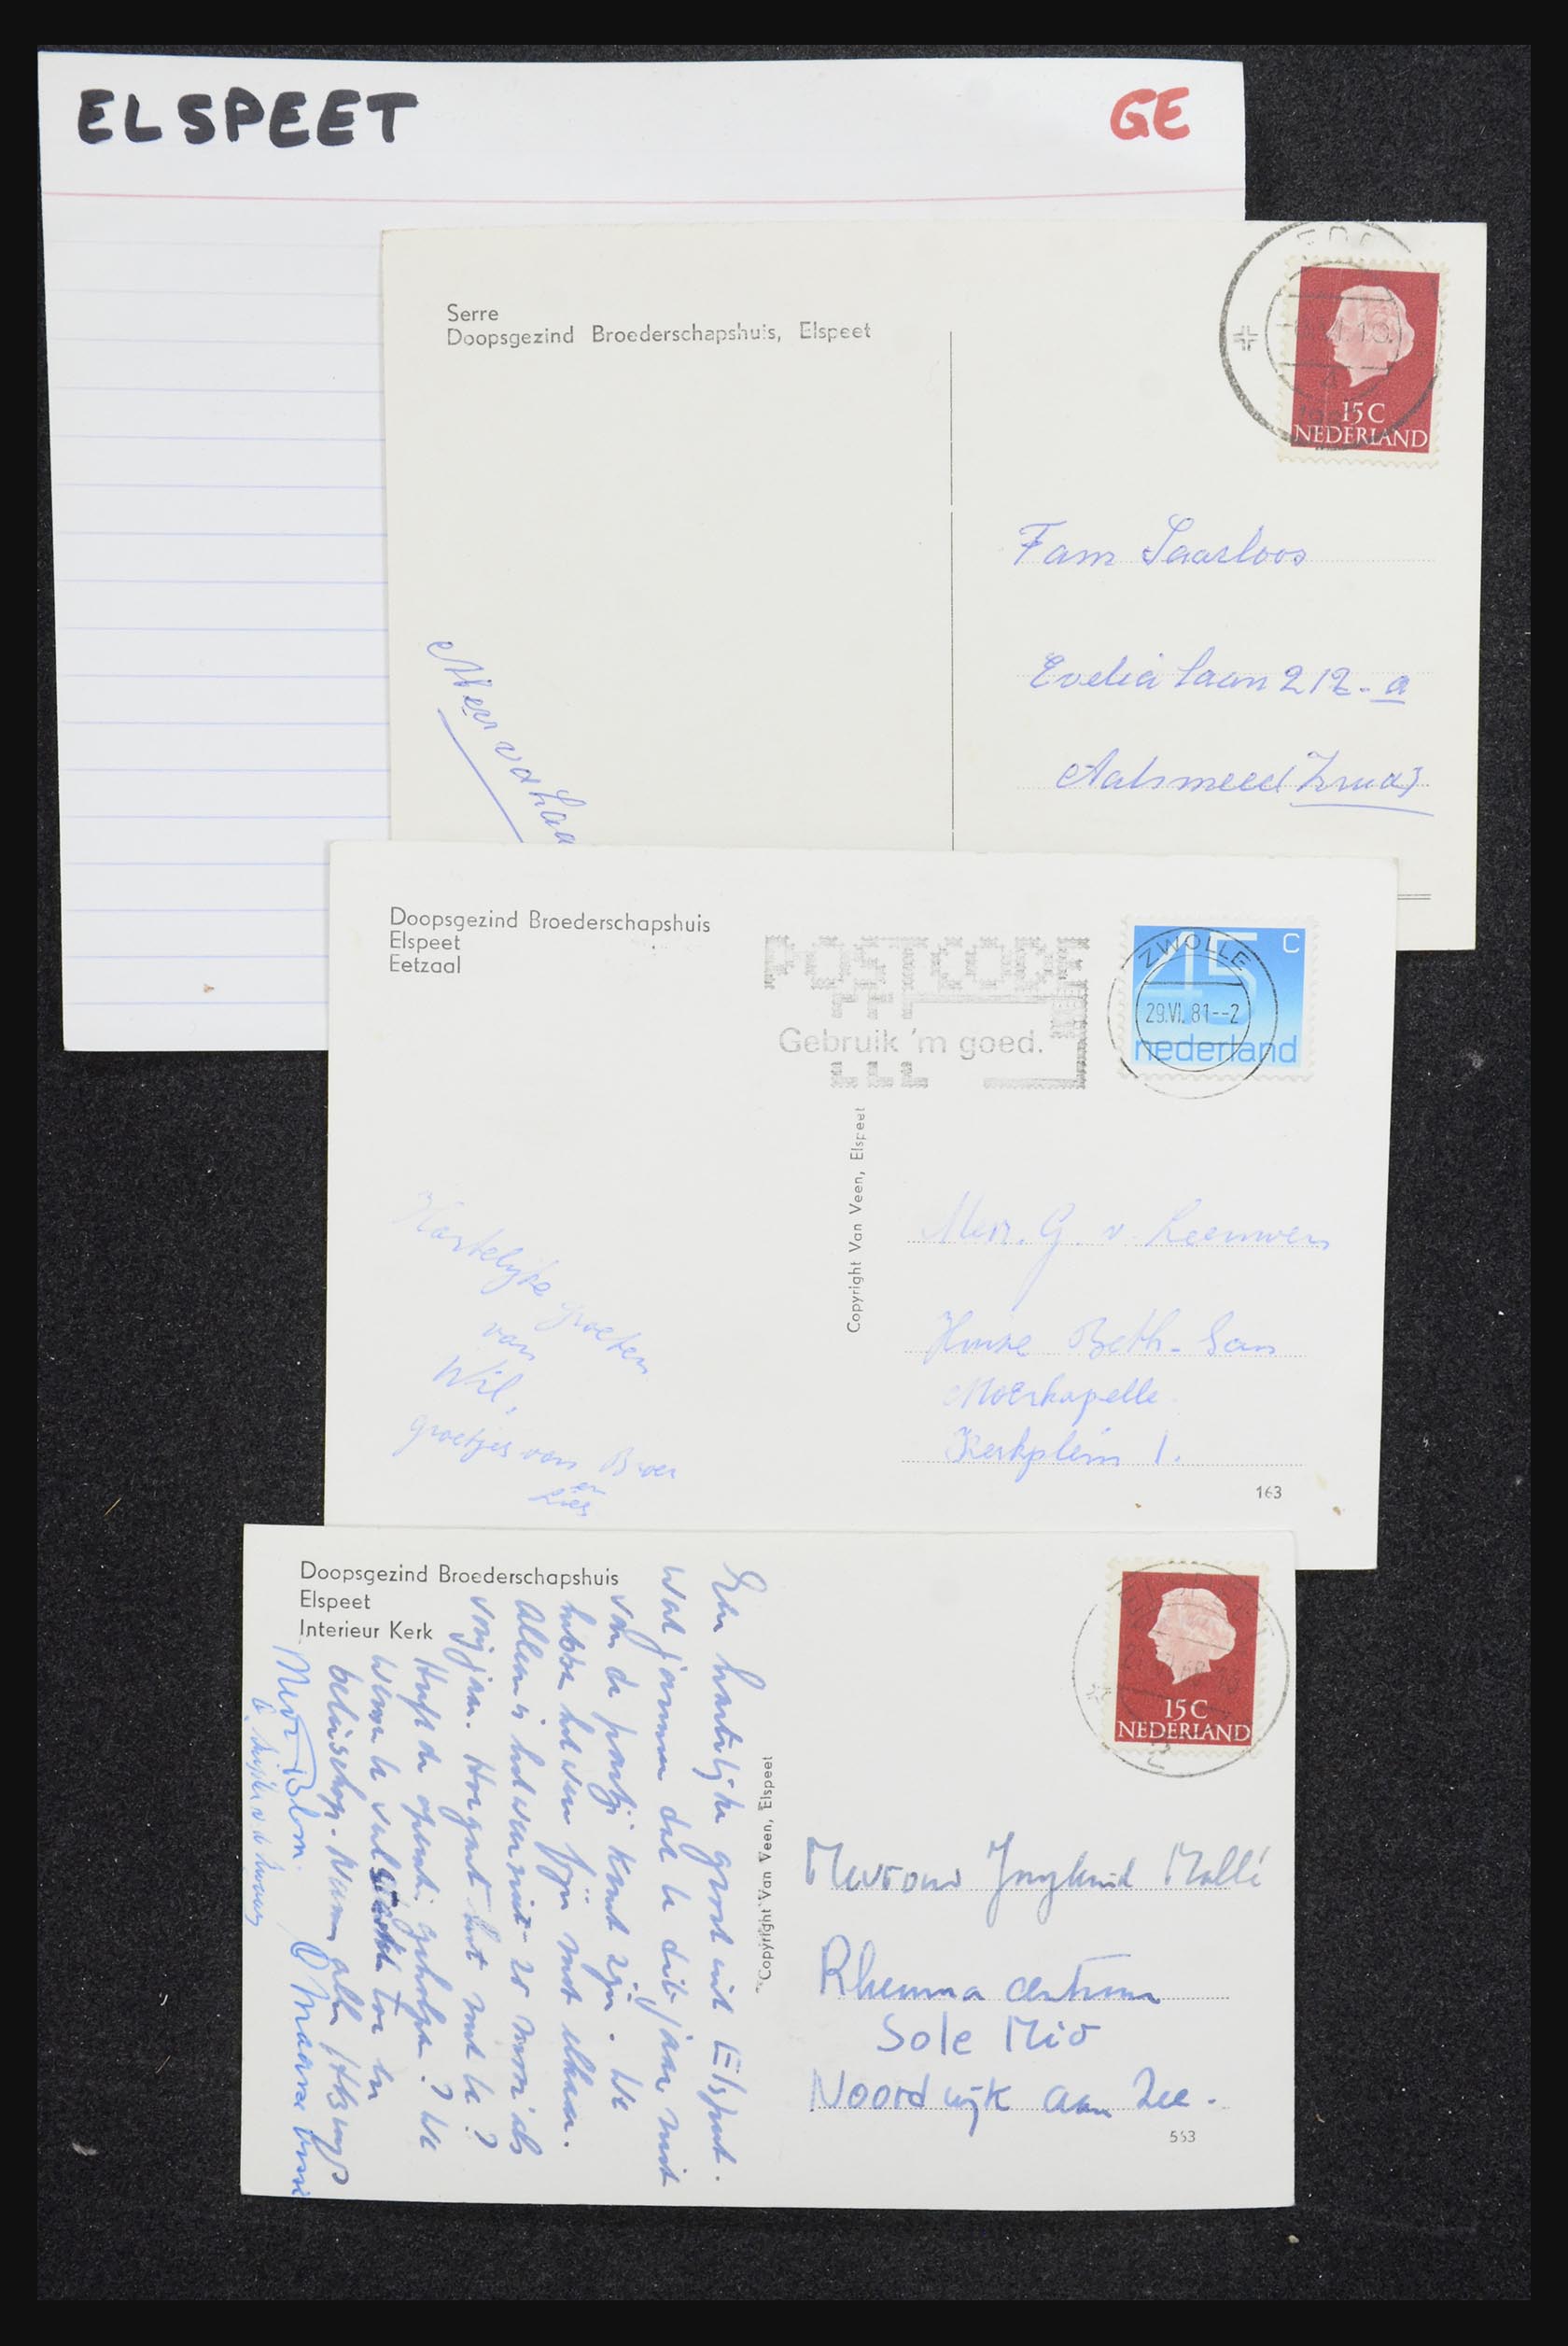 ELSPEET
GE
Serre
Doopsgezind Broederschapshuis, Elspeet
15 C
NEDERLAND
Fam Saarloos
laan 212-a
Doopsgezind Broederschapshuis
Elspeet
Eetzaal
POSTCODE
Gebruik 'm goed.
ZWOLLE
29.VI.81--2
45 C
nederland
Copyright Van Veen, Elspeet
Hartelijke groeten
van
Wil,
groetjes van Broer
en
Lies
Mevr. G. v. Leeuwen
Huize Beth-San
Moerkapelle
Kerkplein 1.
163
Doopsgezind Broederschapshuis
Elspeet
Interieur Kerk
15 C
NEDERLAND
Een hartelijke groet uit Elspeet.
Wat jammer dat U dit jaar niet
van de partij kunt zijn. We
hebben het weer fijn met elkaar.
Alleen is het weer niet zo mooi als
vorig jaar. Hoe gaat het met U?
Heeft de operatie geholpen? We
wensen U veel sterkte toe en
beterschap. Namens allen
Mevr Blom.
Copyright Van Veen, Elspeet
Mevrouw
Rheuma Centrum
Sole Mio
Noordwijk aan Zee.
553